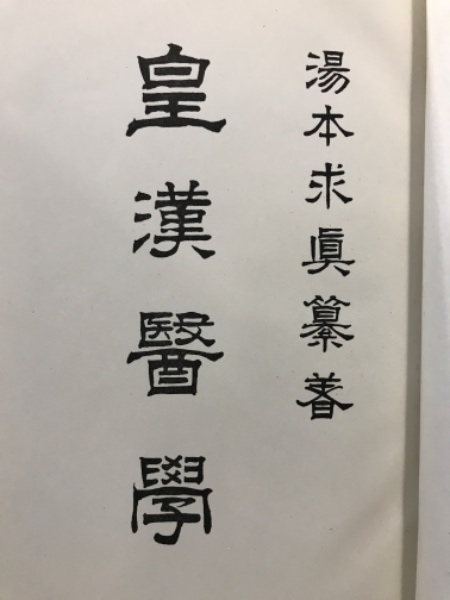 湯本求眞纂著
皇漢醫學